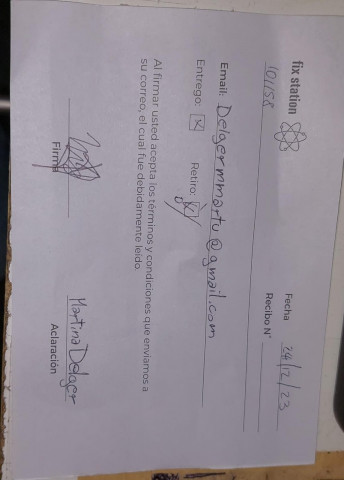 fix station
Fecha 24/12/23
101158
Recibo N°
Email: Delgermmartu@gmail.com
Entrego: X Retiro: X
Al firmar usted acepta los términos y condiciones que enviamos a
su correo, el cual fue debidamente leído.
Martina Delger
Firma Aclaración